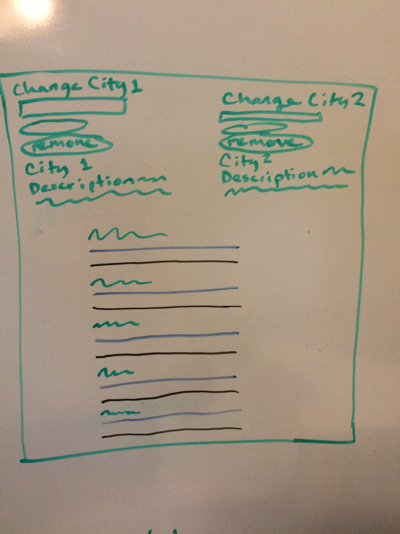 Change City 1
remove
City 1
Description
Change City 2
remove
City 2
Description